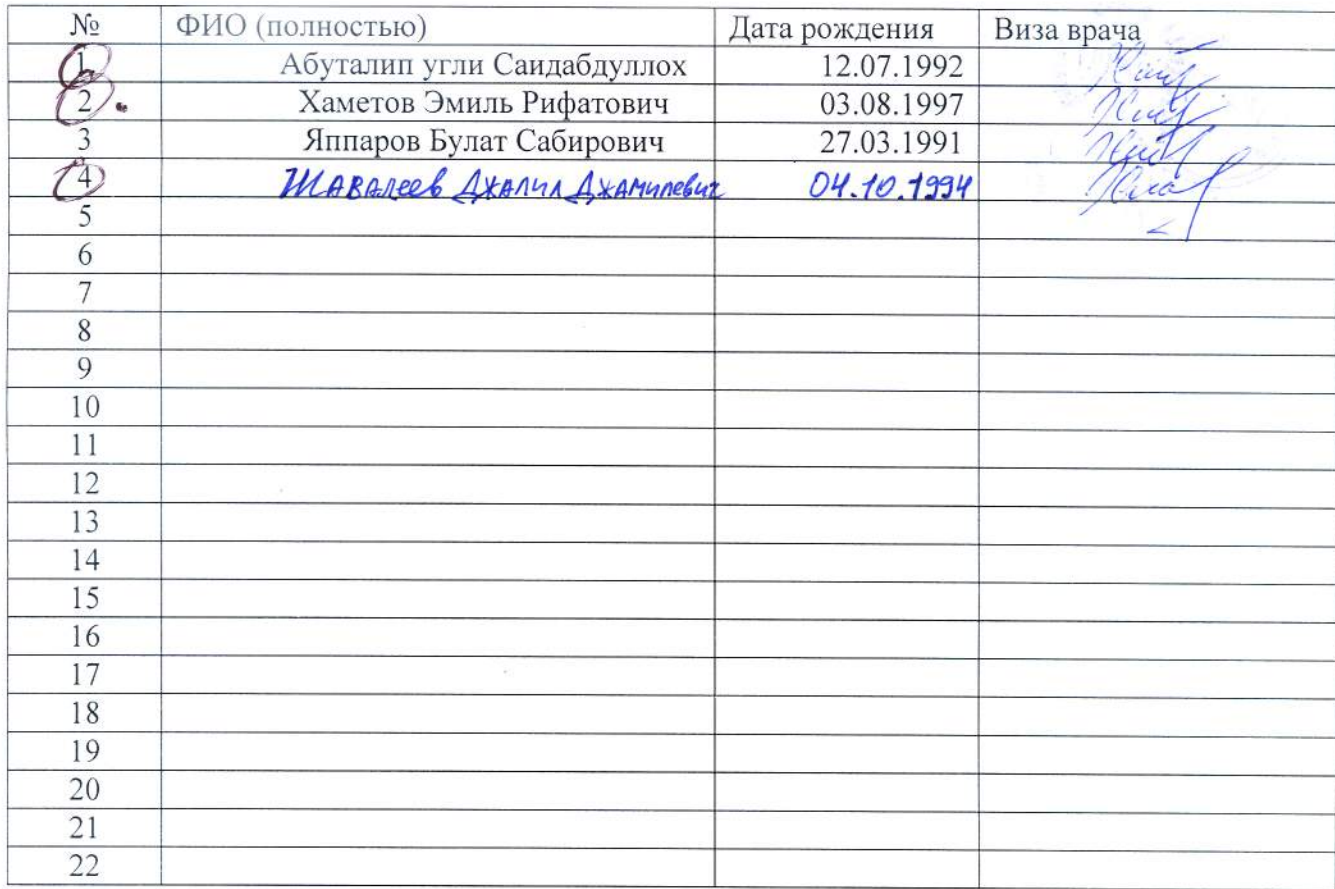 № ФИО (полностью) Дата рождения Виза врача
1 Абуталип угли Саидабдуллох 12.07.1992
2 Хаметов Эмиль Рифатович 03.08.1997
3 Яппаров Булат Сабирович 27.03.1991
4 Шавалеев Джалил Джамилевич 04.10.1994
5
6
7
8
9
10
11
12
13
14
15
16
17
18
19
20
21
22